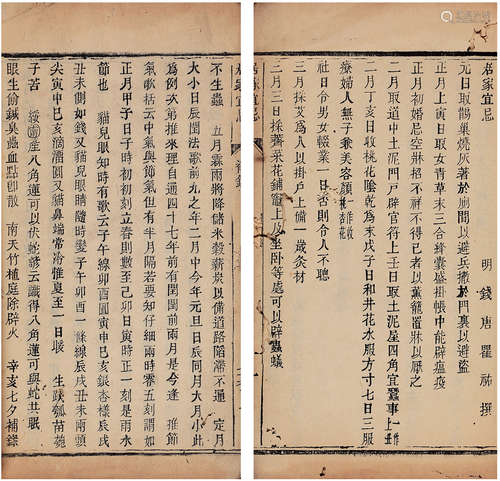 居家宜忌
明 錢唐瞿祐 撰
元日取鵲巢燒灰著於廁間以避兵撒於門裏以避盜
正月上寅日取女青草末三合絳囊盛掛帳中能辟瘟疫
正月初婚忌空牀招不祥不得已者以薰籠置牀以厭之
二月取道中土泥門戶辟官符上壬日取土泥屋四角宜蠶事
二月丁亥日收桃花陰乾為末戊子日和井花水服方寸七日三服
療婦人無子兼美容顏
社日令男女輟業一日否則令人不聰
三月採艾為人以掛戶上備一歲灸材
三月三日採薺菜花鋪竈上及坐卧等處可以辟蟲蟻
居家宜忌
不生蟲 五月霖雨將降儲米穀薪炭以備道路陷滯不通 定月
大小日辰閏法歌前九之年二月中今年元旦日辰同月大月小此
為例次第推來理自通四十七年前有閏閏前兩月是今逢 推節
氣歌括云中氣與節氣但有半月隔若要知仔細兩時零五刻謂如
正月甲子日子時初初刻立春則數至己卯日寅時正一刻是雨水
節也 貓兒眼知時有歌云子午線卯酉圓寅申巳亥銀杏樣辰戌
丑未側如錢又貓兒眼睛隨時變子午卯酉一條線辰戌丑未兩頭
尖寅申巳亥滴滴圓又貓鼻端常冷惟夏至一日煖 生跌瓠苗菀
子苦 綏寧產八角蓮可以伏蛇諺云識得八角蓮可與蛇共眠
眼生偷鍼臭蟲血點卽散 南天竹植庭除辟火 辛亥七夕補錄